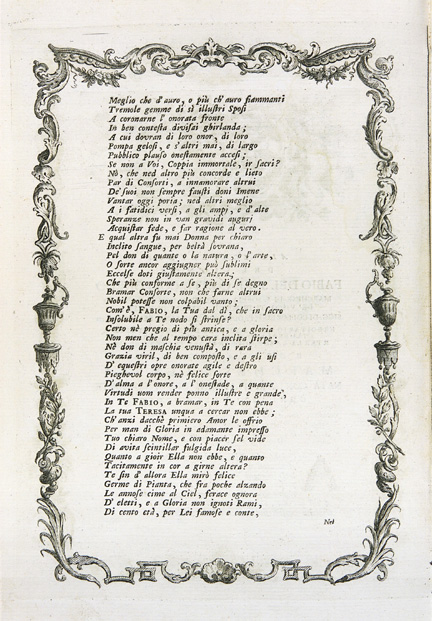 Meglio che d'auro, o più ch'auro fiammanti
Tremole gemme di sì illustri Sposi
A coronarne l'onorata fronte
In ben contesta divisai ghirlanda;
A cui dovran di loro onor, di loro
Pompa gelosi, e s'altri mai, di largo
Pubblico plauso onestamente accesi;
Se non a Voi, Coppia immortale, ir sacri?
Nò, che ned altro più concorde e lieto
Par di Consorti, a innamorare altrui
De' suoi non sempre fausti doni Imene
Vantar oggi poria; ned altri meglio
A i fatidici versi, a gli ampj, e d'alte
Speranze non in van gravidi augurj
Acquistar fede, e far ragione al vero.
E qual altra fu mai Donna per chiaro
Inclito sangue, per beltà sovrana,
Pel don di quanto o la natura, o l'arte,
O sorte ancor aggiugner può sublimi
Eccelse doti giustamente altera;
Che più conforme a se, più di se degno
Bramar Consorte, non che farne altrui
Nobil potesse non colpabil vanto;
Com'è, FABIO, la Tua dal dì, che in sacro
Insolubile a Te nodo si strinse?
Certo nè pregio di più antica, e a gloria
Non men che al tempo cara inclita stirpe;
Nè don di maschia venustà, di rara
Grazia viril, di ben composto, e a gli usi
D'equestri opre onorate agile e destro
Pieghevol corpo, nè felice sorte
D'alma a l'onore, a l'onestade, a quante
Virtudi uom render ponno illustre e grande,
In Te FABIO, a bramar, in Te con pena
La tua TERESA unqua a cercar non ebbe;
Ch'anzi dacchè primiero Amor le offrìo
Per man di Gloria in adamante impresso
Tuo chiaro Nome, e con piacer sel vide
Di avita scintillar fulgida luce,
Quanto a gioir Ella non ebbe, e quanto
Tacitamente in cor a girne altera?
Te fin d'allora Ella mirò felice
Germe di Pianta, che fra poche alzando
Le annose cime al Ciel, ferace ognora
D'eletti, e a Gloria non ignoti Rami,
Di cento età, per Lei famose e conte,